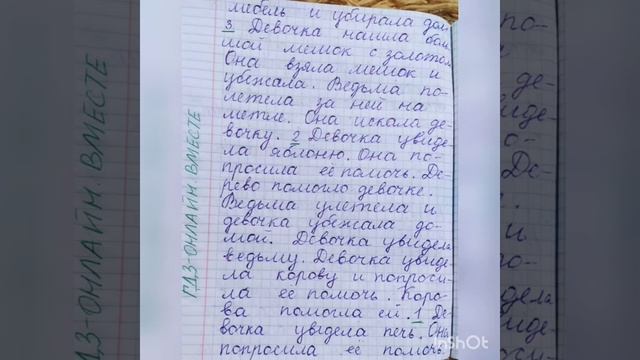 мебель и убирала дом.
3. Девочка нашла боль
шой мешок с золотом
Она взяла мешок и
убежала. Ведьма по-
летела за ней на
метле. Она искала де-
вочку. 2 Девочка увиде-
ла яблоню. Она по-
просила её помочь. Де-
рево помогло девочке.
Ведьма улетела и
девочка убежала до-
мой. Девочка увидела
ведьму. Девочка увиде-
ла корову и попроси-
ла ее помочь. Коро-
ва помогла ей. 1 Де-
вочка увидела печь. Она
попросила ее помочь
ГДЗ-ОНЛАЙН. ВМЕСТЕ
InShOt